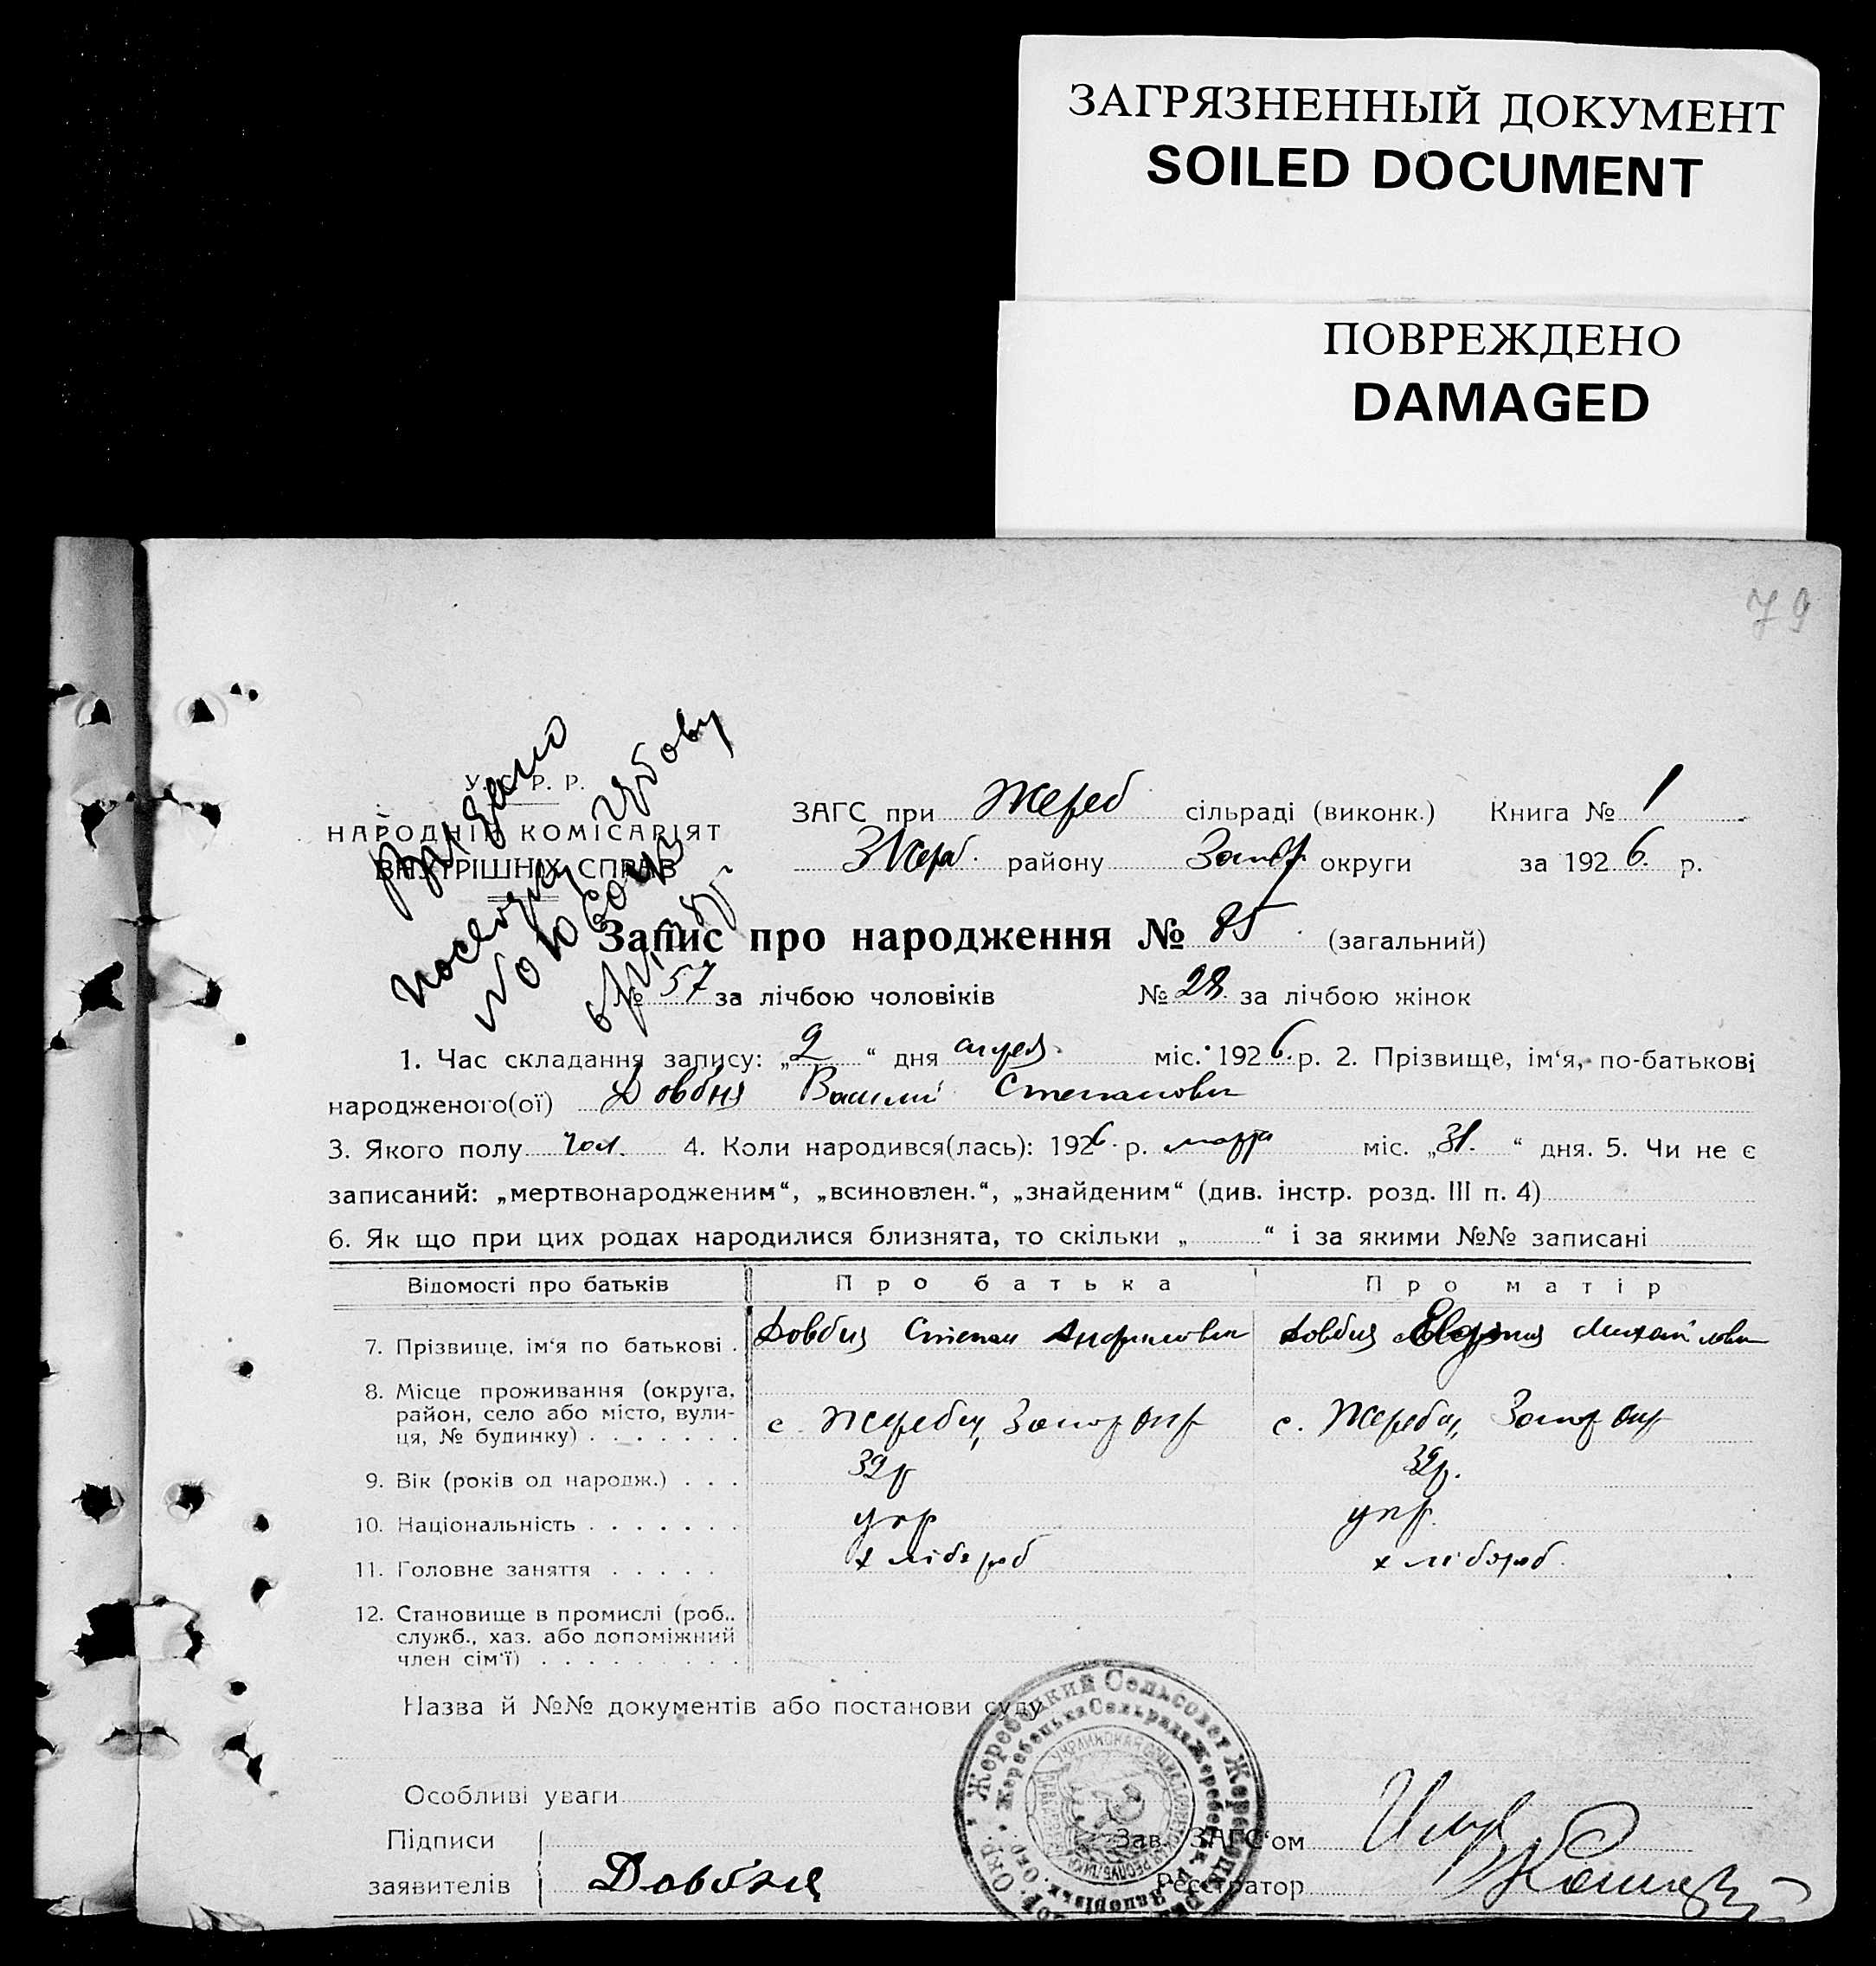 ЗАГРЯЗНЕННЫЙ ДОКУМЕНТ
SOILED DOCUMENT
ПОВРЕЖДЕНО
DAMAGED
79
У. С. Р. Р.
НАРОДНІЙ КОМІСАРІЯТ
ВНУТРІШНІХ СПРАВ
ЗАГС при Жереб сільраді (виконк.) Книга № 1
Жереб. району Запор округи за 1926 р.
Запис про народження № 85 (загальний)
№ 57 за лічбою чоловіків № 28. за лічбою жінок
1. Час складання запису: „2“ дня апреля міс. 1926 р. 2. Прізвище, ім‘я, по-батькові
народженого(ої) Довбня Василий Степанович
3. Якого полу чол. 4. Коли народився(лась): 1926 р. марта міс. „31.“ дня. 5. Чи не є
записаний: „мертвонародженим“, „всиновлен.“, „знайденим“ (див. інстр. розд. III п. 4)
6. Як що при цих родах народилися близнята, то скільки „ “ і за якими №№ записані
Відомості про батьків Про батька Про матір
7. Прізвище, ім‘я по батькові . Довбня Степан Довбня
8. Місце проживання (округа,
район, село або місто, вули-
ця, № будинку) . . . . . . . с. Жеребец, Запор окр с. Жеребец, Запор окр
9. Вік (років од народж.) . . . 39р 39р.
10. Національність . . . . . . . укр укр.
11. Головне заняття . . . . . хлібороб хлібороб.
12. Становище в промислі (роб.,
служб., хаз. або допоміжний
член сім‘ї) . . . . . . . . .
Назва й №№ документів або постанови суду
Особливі уваги
Підписи
заявителів Довбня
Зав. ЗАГС‘ом
Реєстратор